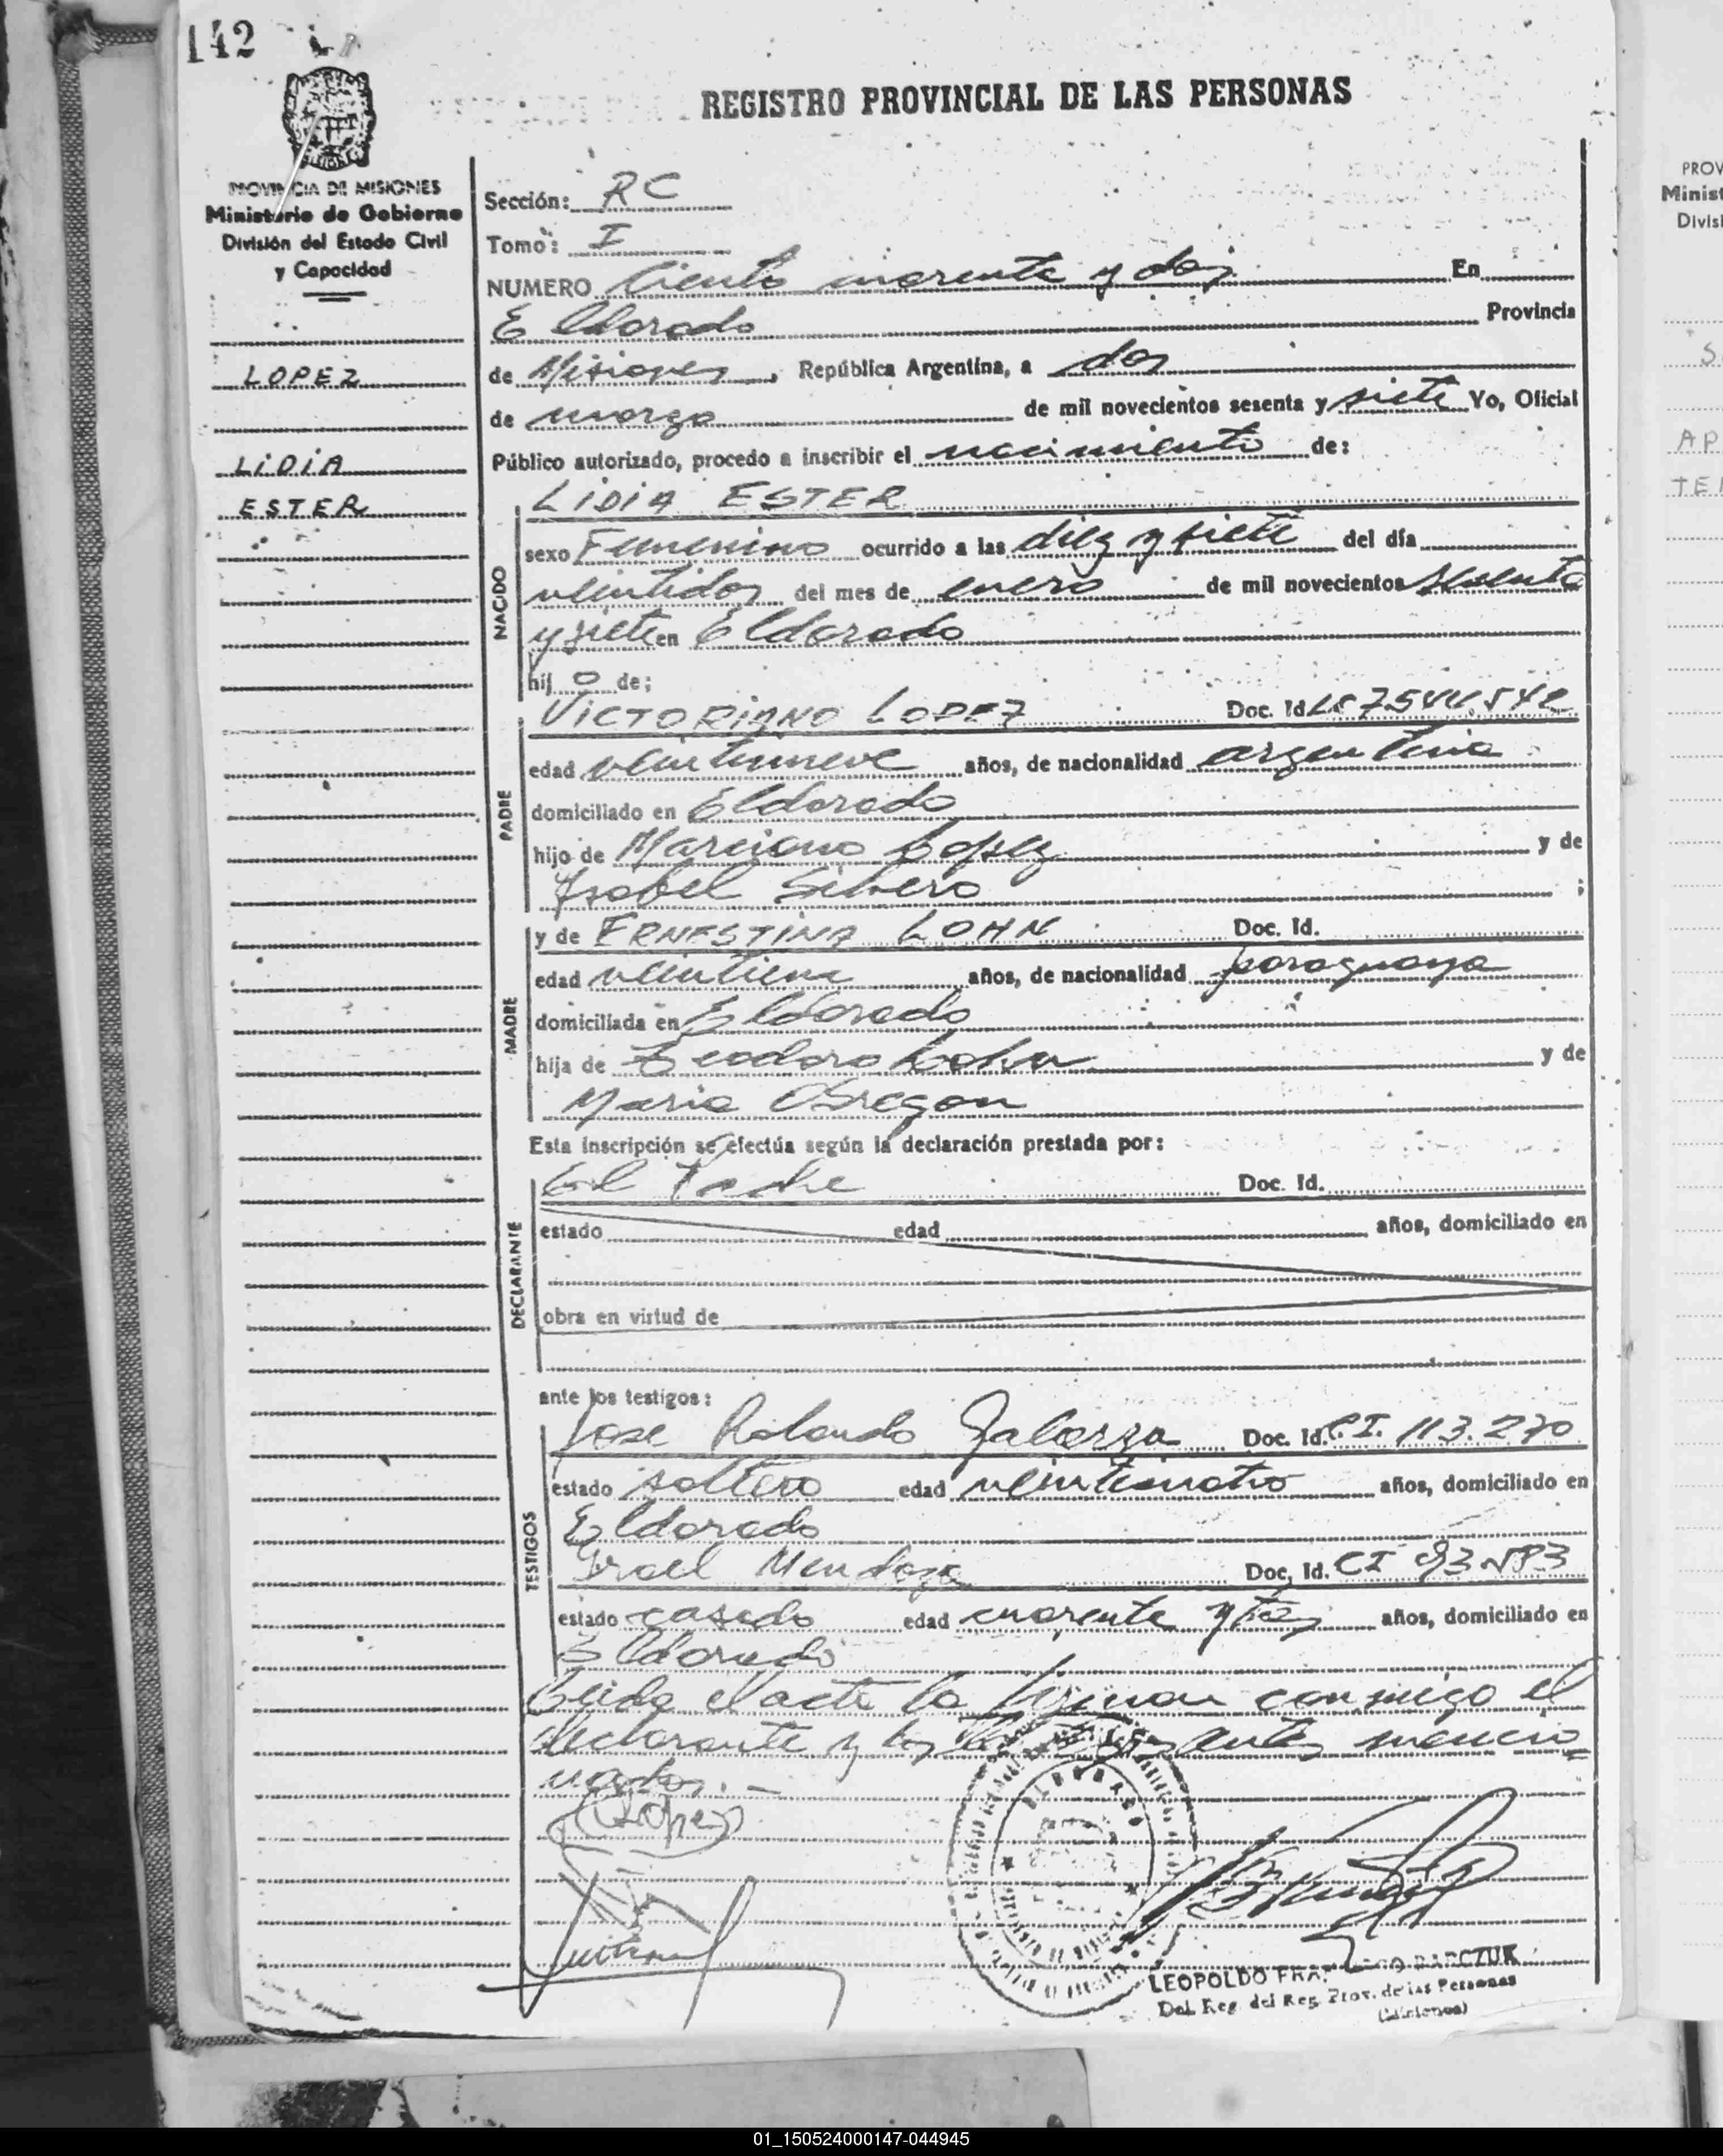 142
REGISTRO PROVINCIAL DE LAS PERSONAS
PROVINCIA DE MISIONES
Ministerio de Gobierno
División del Estado Civil
y Capacidad
LOPEZ
LIDIA
ESTER
Sección: RC
Tomo: I
NUMERO Ciento cuarenta y dos En
Eldorado Provincia
de Misiones, República Argentina, a dos
de marzo de mil novecientos sesenta y siete Yo, Oficial
Público autorizado, procedo a inscribir el nacimiento de:
LIDIA ESTER
NACIDO
sexo Femenino ocurrido a las diez y siete del día
veintidos del mes de enero de mil novecientos sesenta
y siete en Eldorado
hij o de;
PADRE
VICTORIANO LOPEZ Doc. Id.
edad veintinueve años, de nacionalidad argentina
domiciliado en Eldorado
hijo de Marciano Lopez y de
Isabel ;
MADRE
y de ERNESTINA LOHN Doc. Id.
edad años, de nacionalidad paraguaya
domiciliada en Eldorado
hija de Teodoro Lohn y de
Maria Obregon
Esta inscripción se efectúa según la declaración prestada por:
DECLARANTE
El Padre Doc. Id.
estado edad años, domiciliado en
obra en virtud de
ante los testigos:
TESTIGOS
Jose Rolando Galarza Doc. Id. C.I. 113.270
estado soltero edad veinticuatro años, domiciliado en
Eldorado
Israel Mendoza Doc. Id. CI
estado casado edad cuarenta y años, domiciliado en
Eldorado
Leida el acta la firman conmigo el
declarante y los testigos antes mencio
nados.-
Lopez
LEOPOLDO BARCZUK
Del. Reg. del Reg. Prov. de las Personas
(Misiones)
PROV
Minist
Divisi
S.
AP
TE
01_150524000147-044945